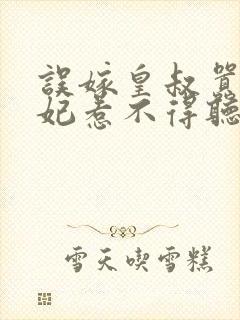 誤嫁皇叔
妃惹不得聽
雪天喫雪糕